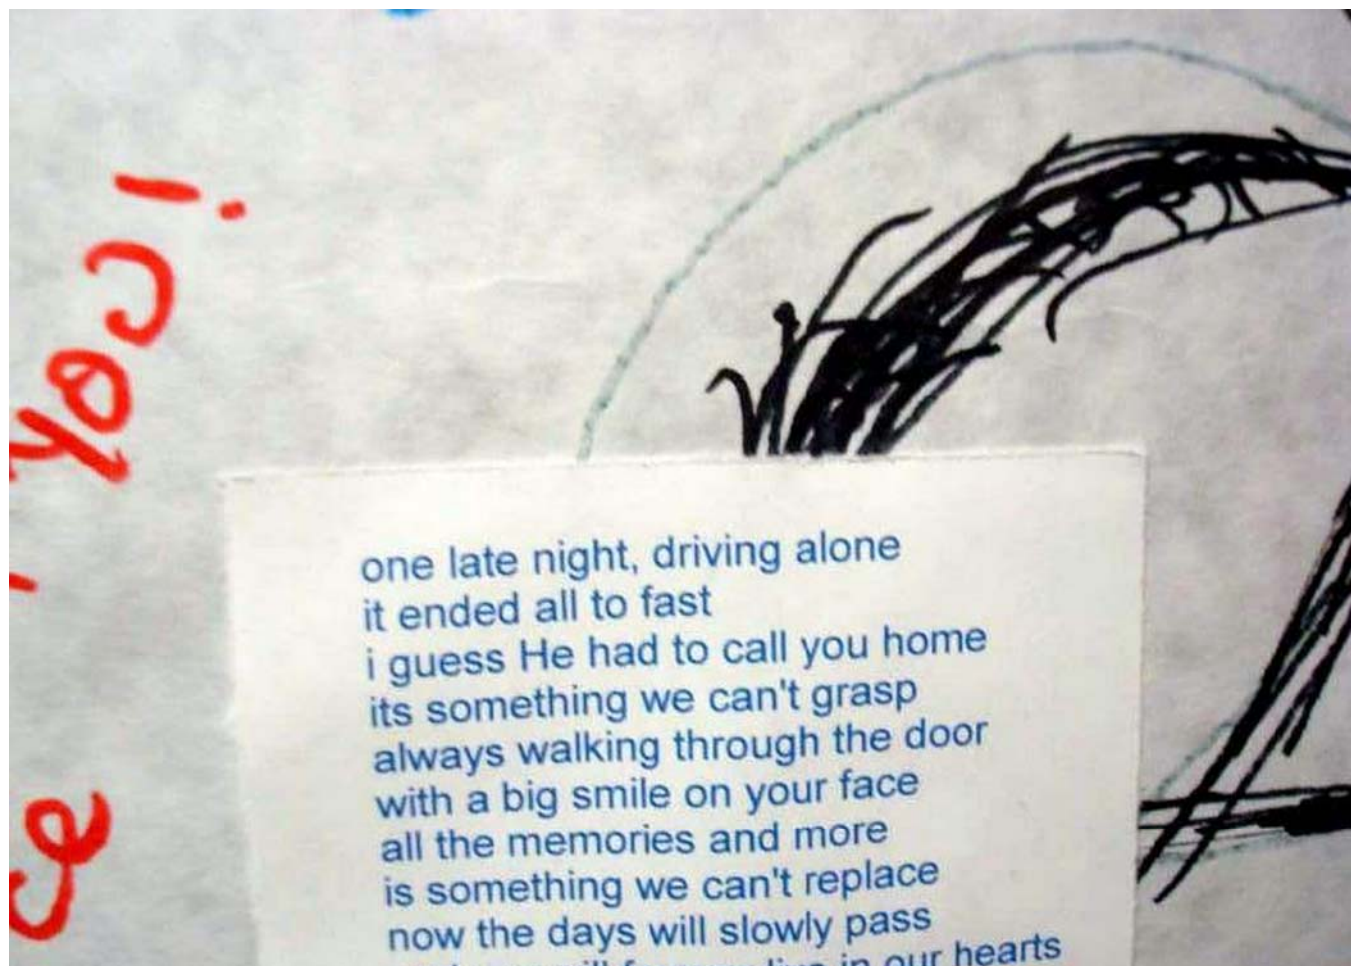 You!
one late night, driving alone
it ended all to fast
i guess He had to call you home
its something we can't grasp
always walking through the door
with a big smile on your face
all the memories and more
is something we can't replace
now the days will slowly pass
in our hearts